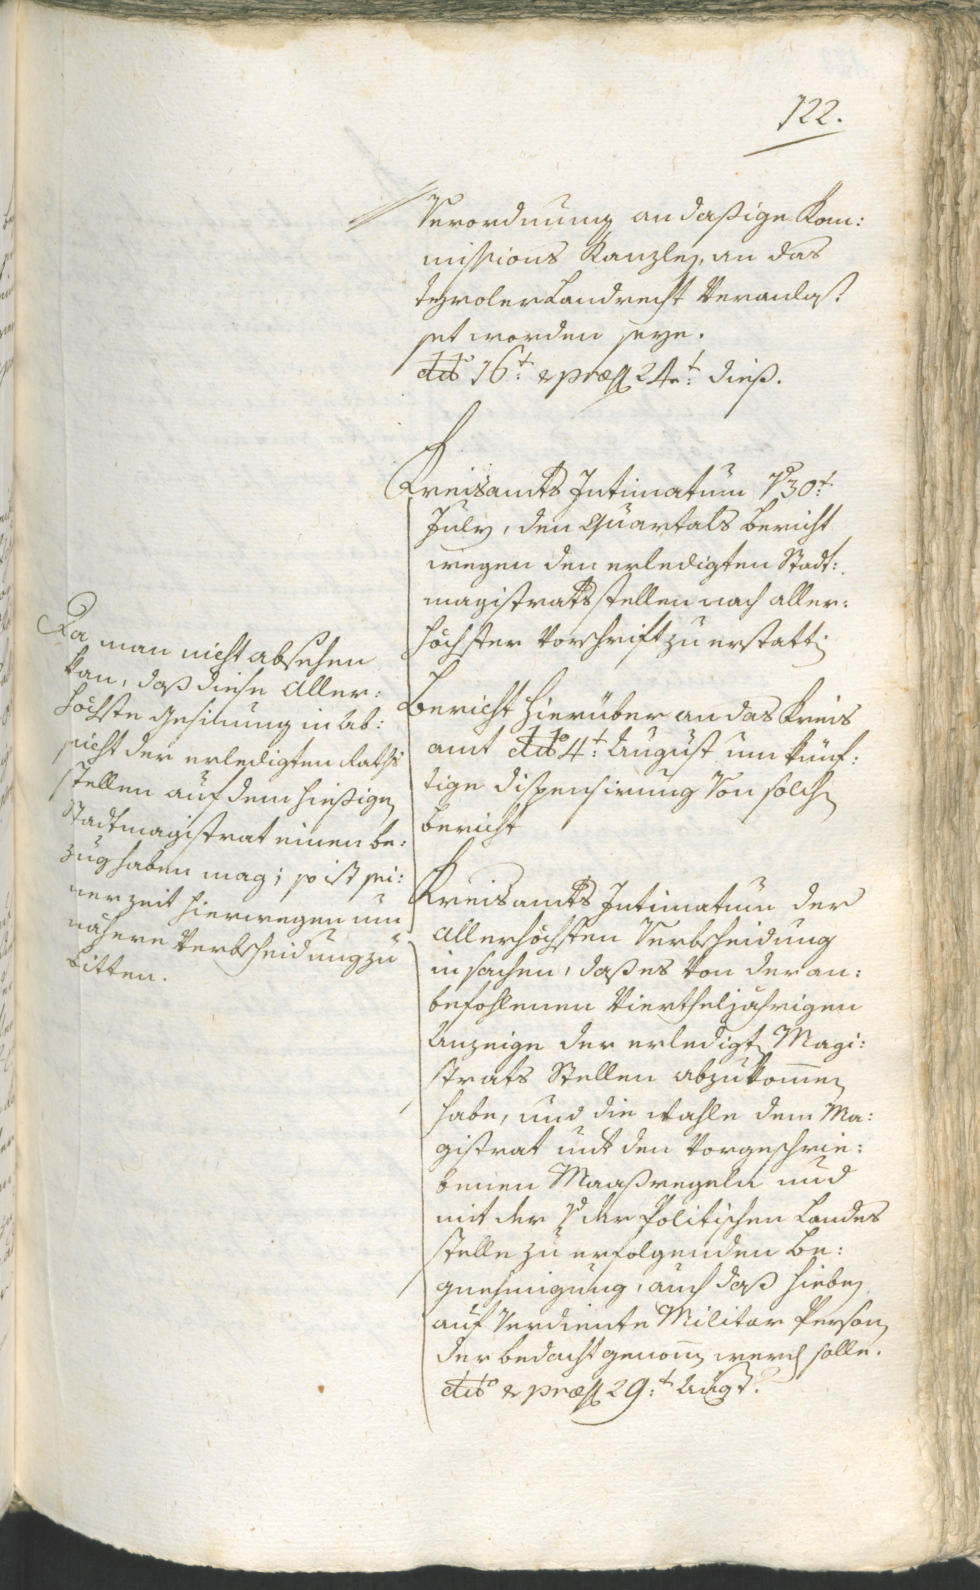 122.
Verordnung an dasige Kom:
missions Kanzley, an das
tyroler Landrecht veranlas:
set worden seye.
ddto 16t: & præs 24t: dieß.
Kreisamts Intimatum 30t:
July, den Quartals Bericht
wegen den erledigten Stadt:
magistratsstellen nach aller:
höchster Vorschrift zu erstatten
Bericht hierüber an das Kreis
amt ddto 4t: August um künf:
tige dispensirung von solchen
bericht
Kreisamts Intimatum der
allerhöchsten Verbscheidung
in sachen, daß es von der an:
befohlenen vierteljährigen
Anzeige der erledigten Magi:
strats Stellen abzukommen
habe, und die Wahle dem Ma:
gistrat mit den vorgeschrie:
benen Maaßregeln und
mit der der Politischen Landes
stelle zu erfolgenden Be:
gnehmigung, auch daß hiebey
auf verdiente Militar Person
der bedacht genomen werden solle.
ddto & præs 29t: Augt.
Da man nicht absehen
kan, daß diese Aller:
höchste Gesinnung in Ab:
sicht der erledigten Raths
stellen auf dem hiesigen
Stadtmagistrat einen be:
zug haben mag; so ist sei:
ner zeit hierwegen um
nähere Verbscheidung zu
bitten.